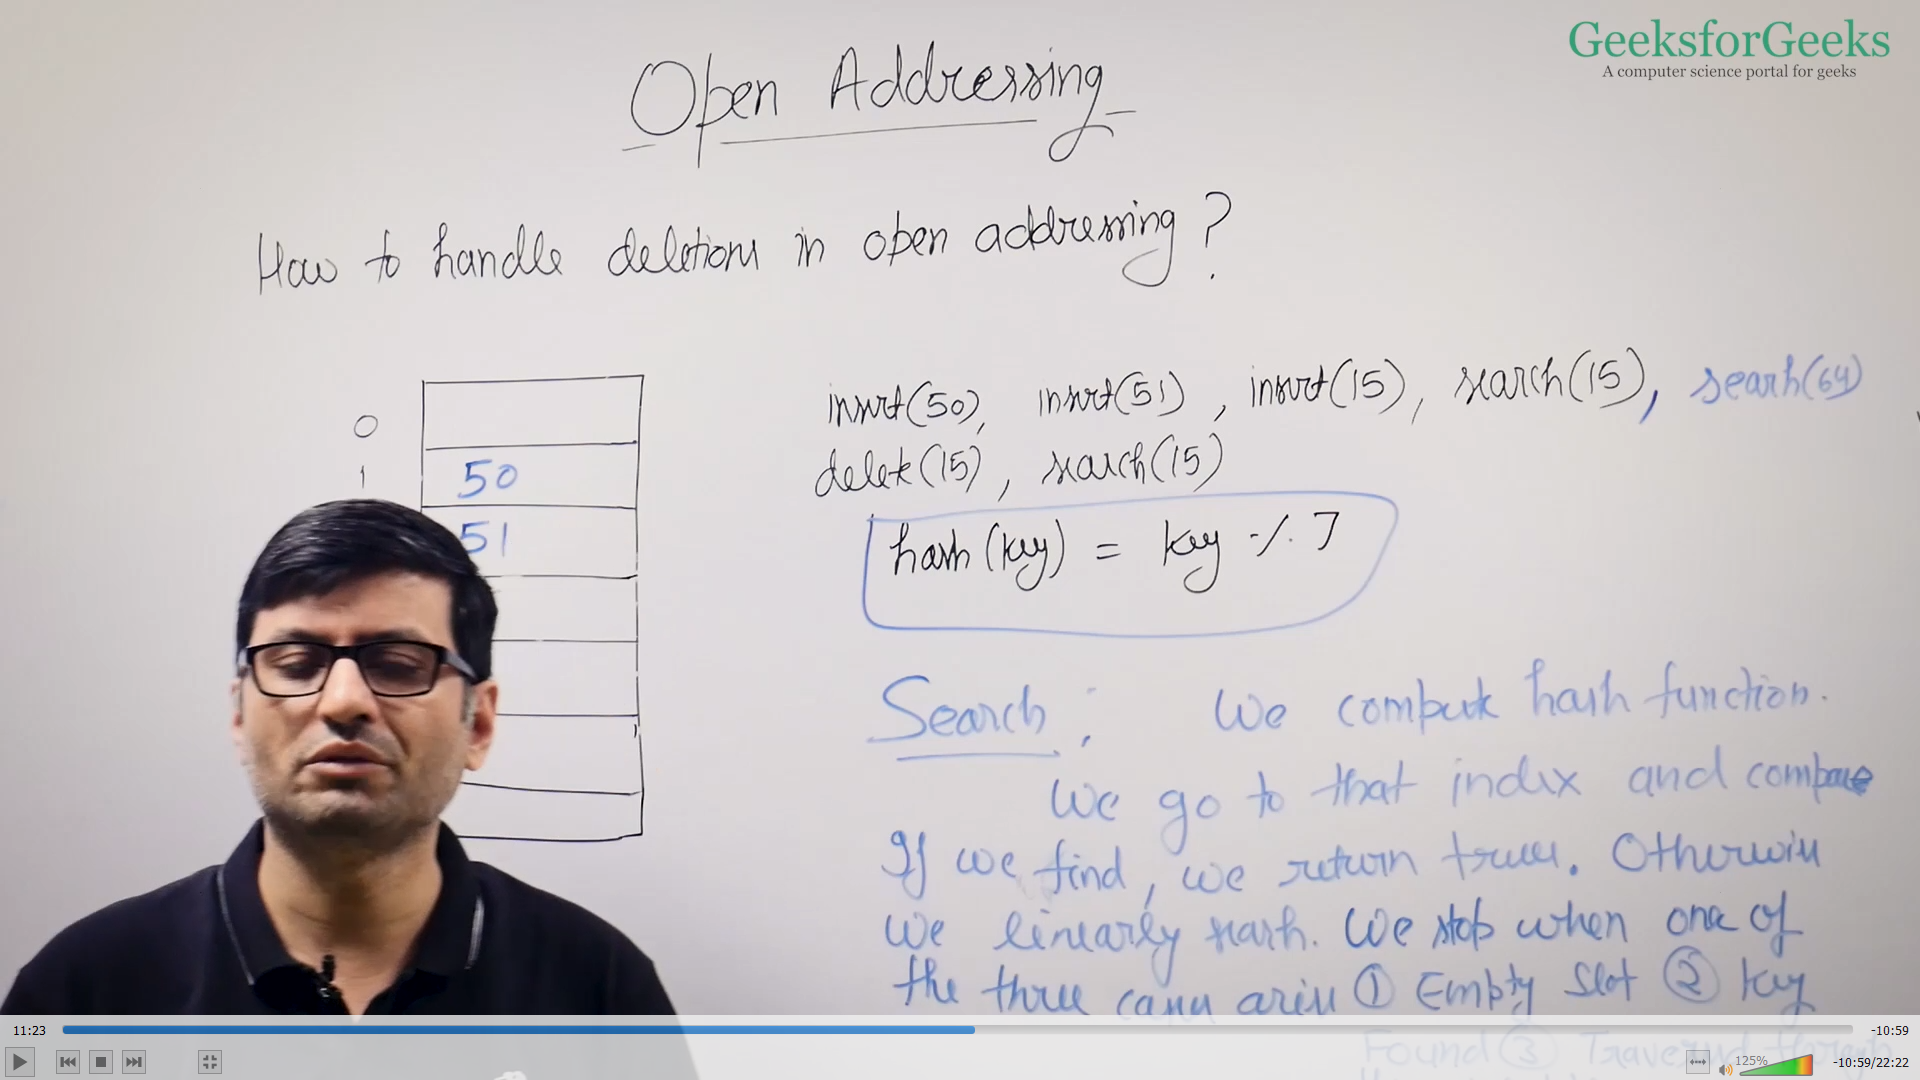 GeeksforGeeks
A computer science portal for geeks
Open Addressing
How to handle deletions in open addressing?
insert(50), insert(51), insert(15), search(15), searh(64)
delete(15), search(15)
0
1
50
51
hash(key) = key % 7
Search: We compute hash function.
We go to that index and compare
If we find, we return true. Otherwise
we linearly search. We stop when one of
the three cases arise ① Empty Slot ② key
Found ③ Traversed through
11:23
-10:59
125%
-10:59/22:22